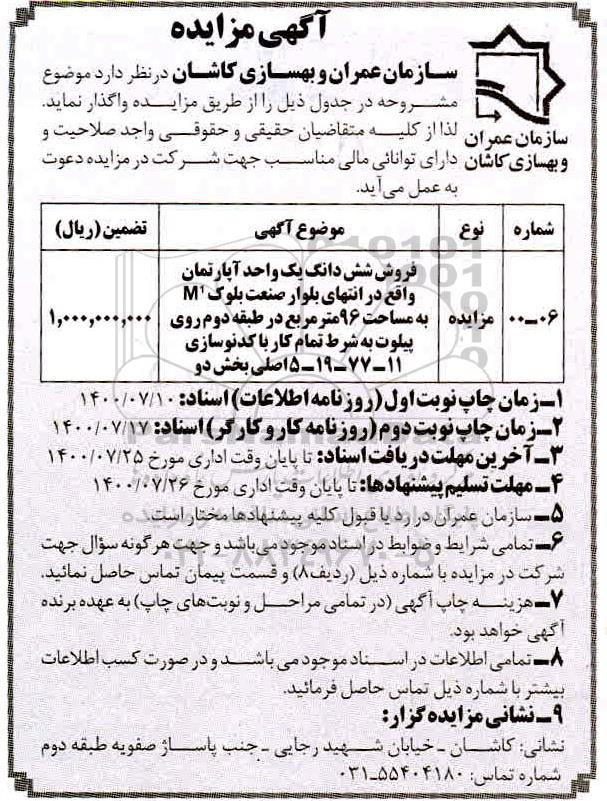 آگهی مزایده
سازمان عمران و بهسازی کاشان
سازمان عمران و بهسازی کاشان درنظر دارد موضوع
مشروحه در جدول ذیل را از طریق مزایده واگذار نماید.
لذا از کلیه متقاضیان حقیقی و حقوقی واجد صلاحیت و
دارای توانائی مالی مناسب جهت شرکت در مزایده دعوت
به عمل می‌آید.
شماره نوع موضوع آگهی تضمین (ریال)
۰۰-۰۶ مزایده ۱,۰۰۰,۰۰۰,۰۰۰
فروش شش دانگ یک واحد آپارتمان
واقع در انتهای بلوار صنعت بلوک M۱
به مساحت ۹۶ متر مربع در طبقه دوم روی
پیلوت به شرط تمام کار با کد نوسازی
۱۱-۷۷-۱۹-۱۵ اصلی بخش دو
۱- زمان چاپ نوبت اول (روزنامه اطلاعات) اسناد: ۱۴۰۰/۰۷/۱۰
۲- زمان چاپ نوبت دوم (روزنامه کار و کارگر) اسناد: ۱۴۰۰/۰۷/۱۷
۳- آخرین مهلت دریافت اسناد: تا پایان وقت اداری مورخ ۱۴۰۰/۰۷/۲۵
۴- مهلت تسلیم پیشنهادها: تا پایان وقت اداری مورخ ۱۴۰۰/۰۷/۲۶
۵- سازمان عمران در رد یا قبول کلیه پیشنهادها مختار است.
۶- تمامی شرایط و ضوابط در اسناد موجود می‌باشد و جهت هر گونه سؤال جهت
شرکت در مزایده با شماره ذیل (ردیف۸) و قسمت پیمان تماس حاصل نمائید.
۷- هزینه چاپ آگهی (در تمامی مراحل و نوبت‌های چاپ) به عهده برنده
آگهی خواهد بود.
۸- تمامی اطلاعات در اسناد موجود می باشد و در صورت کسب اطلاعات
بیشتر با شماره ذیل تماس حاصل فرمائید.
۹- نشانی مزایده گزار:
نشانی: کاشان - خیابان شهید رجایی - جنب پاساژ صفویه طبقه دوم
شماره تماس: ۵۵۴۰۴۱۸۰-۰۳۱